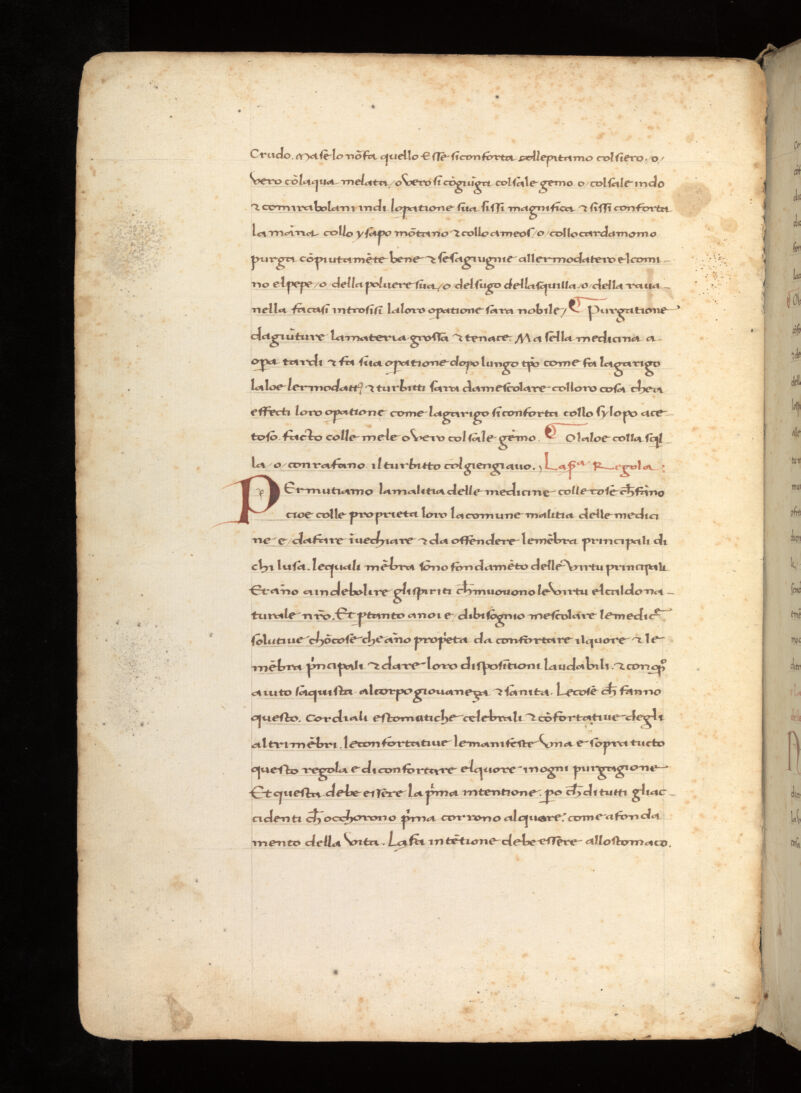 Crudo. Ma sē lo nōfa quello E sse siconforta collepitamo col siero. o /
vero cōlaqua melata / o vero si cōgiūga colsale gemo o / col sale indo
⁊ comirabolani indi lopatione sua sissi magnifica ⁊ sissi conforta
la māna collo ysapo mōtano ⁊ collo ameos / o / collo cardamomo
purga cōpiutamēte bene ⁊ se sagiugnie allermodatero el comi
no el pepe / o della poluere sua / o del sugo dellasquilla / o della raua
nella facasi introsisi la loro opatione sara nobile / ¶ Purgatione
dagiūture la materia grossa ⁊ tenace. Ma sella medicina a
opa tardi ⁊ fa sua opatione dopo lungo tpō come fa lagarigo
laloe lermodatt⁊ ⁊ turbitti sara da mescolare colloro cosa che a
effecti loro opatione come lagarigo siconforta collo sylopo ace
toso facto colle mele o vero col sale gēmo. ¶ O laloe colla sql
la / o / con rafano il turbitto col giengiauo. / La pª Regola :
PErmutiamo la malitia delle medicine colle cose ch̄ fāno
cioe colle proprieta loro la comune malitia delle medici
ne e / dafare īuechiare ⁊ da offendere le mēbra principali di
chi lusa. lequali mēbra sōno fondamēto delle virtu principali
Et āno a indebolire gli spiriti ch̄ muouono le virtu el caldo na
turale nr̄o. Et ptanto a noi e dibisogno mescolare le medicē
solutiue chō cose che āno propeta da confortare il quore ⁊ le
mēbra pncipali ⁊ dare loro dispositioni laudabili. ⁊ con qº
aiuto saquista al corpo giouaneza ⁊ sanita. Le cose ch̄ fanno
questo. Cordiali estomatiche celebrali ⁊ cōfortatiue degli
altri mēbri. le confortatiue le manifeste vna e sopra tucto
questo regola e di confortare el quore in ogni purgagione
Et questa debe essere la pma intentione. po ch̄ di tutti gli ac
cidenti ch̄ occhorono pma corrono al quore. come a fonda
mento della vita. La sa intētione debe essere allo stomaco.